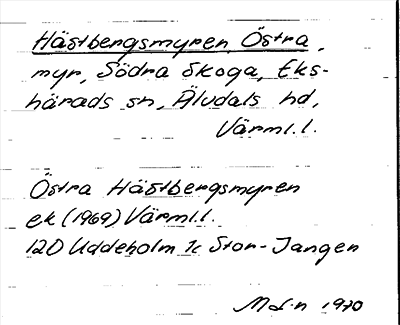 Hästbergsmyren, Östra,
myr, Södra Skoga, Eks-
härads sn, Älvdals hd,
Värml.l.
Östra Hästbergsmyren
ek (1969) Värml.l.
12D Uddeholm 1c Stor-Jangen
1970